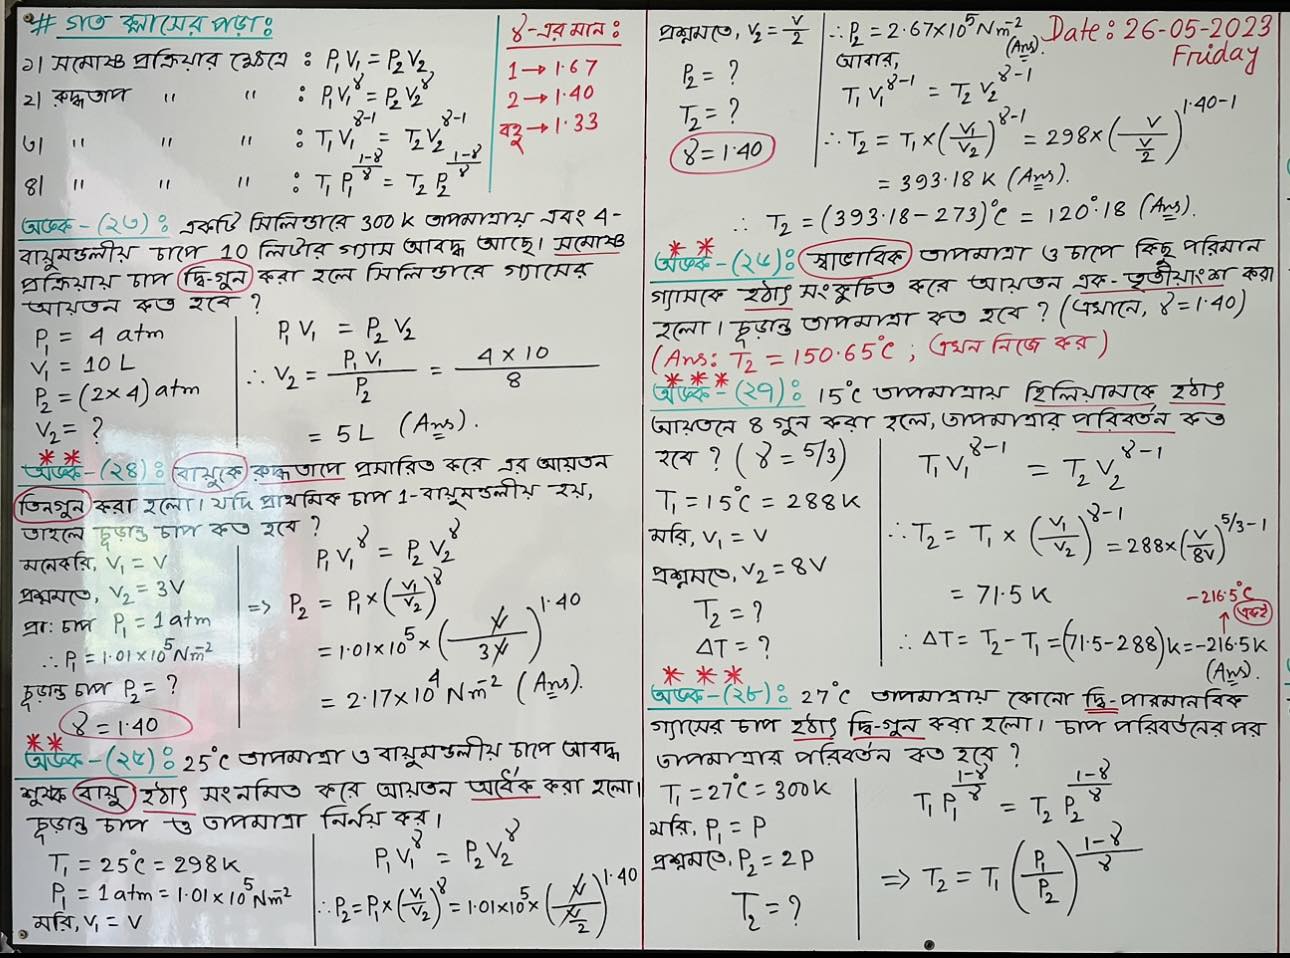 # গত ক্লাসের পড়া:
১। সমোষ্ণ প্রক্রিয়ার ক্ষেত্রে : P₁V₁ = P₂V₂
২। রুদ্ধতাপ " " : P₁V₁^γ = P₂V₂^γ
৩। " " " : T₁V₁^(γ-1) = T₂V₂^(γ-1)
৪। " " " : T₁P₁^((1-γ)/γ) = T₂P₂^((1-γ)/γ)
γ-এর মান:
1 → 1.67
2 → 1.40
বহু → 1.33
অঙ্ক-(২৩): একটি সিলিন্ডারে 300K তাপমাত্রায় এবং 4-
বায়ুমন্ডলীয় চাপে 10 লিটার গ্যাস আবদ্ধ আছে। সমোষ্ণ
প্রক্রিয়ায় চাপ দ্বি-গুন করা হলে সিলিন্ডারে গ্যাসের
আয়তন কত হবে ?
P₁ = 4 atm
V₁ = 10 L
P₂ = (2×4) atm
V₂ = ?
P₁V₁ = P₂V₂
∴ V₂ = P₁V₁/P₂ = 4×10/8
= 5L (Ans).
** অঙ্ক-(২৪): বায়ুকে রুদ্ধতাপে প্রসারিত করে এর আয়তন
তিনগুন করা হলো। যদি প্রাথমিক চাপ 1-বায়ুমন্ডলীয় হয়,
তাহলে চূড়ান্ত চাপ কত হবে ?
মনেকরি, V₁ = V
প্রশ্নমতে, V₂ = 3V
প্রা: চাপ P₁ = 1 atm
∴ P₁ = 1.01×10⁵ Nm⁻²
চূড়ান্ত চাপ P₂ = ?
γ = 1.40
P₁V₁^γ = P₂V₂^γ
=> P₂ = P₁×(V₁/V₂)^γ
= 1.01×10⁵×(V/3V)^1.40
= 2.17×10⁴ Nm⁻² (Ans).
** অঙ্ক-(২৫): 25°C তাপমাত্রা ও বায়ুমন্ডলীয় চাপে আবদ্ধ
শুষ্ক বায়ু হঠাৎ সংনমিত করে আয়তন অর্ধেক করা হলো।
চূড়ান্ত চাপ ও তাপমাত্রা নির্নয় কর।
T₁ = 25°C = 298K
P₁ = 1 atm = 1.01×10⁵ Nm⁻²
ধরি, V₁ = V
P₁V₁^γ = P₂V₂^γ
∴ P₂ = P₁×(V₁/V₂)^γ = 1.01×10⁵×(V/(V/2))^1.40
Date: 26-05-2023
Friday
প্রশ্নমতে, V₂ = V/2
P₂ = ?
T₂ = ?
γ = 1.40
∴ P₂ = 2.67×10⁵ Nm⁻² (Ans).
আবার,
T₁V₁^(γ-1) = T₂V₂^(γ-1)
∴ T₂ = T₁×(V₁/V₂)^(γ-1) = 298×(V/(V/2))^(1.40-1)
= 393.18 K (Ans).
∴ T₂ = (393.18-273)°C = 120°.18 (Ans).
** অঙ্ক-(২৬): স্বাভাবিক তাপমাত্রা ও চাপে কিছু পরিমান
গ্যাসকে হঠাৎ সংকুচিত করে আয়তন এক-তৃতীয়াংশ করা
হলো। চূড়ান্ত তাপমাত্রা কত হবে ? (এখানে, γ = 1.40)
(Ans: T₂ = 150.65°C ; এখন নিজে কর)
*** অঙ্ক-(২৭): 15°C তাপমাত্রায় হিলিয়ামকে হঠাৎ
আয়তনে ৪ গুন করা হলে, তাপমাত্রার পরিবর্তন কত
হবে ? (γ = 5/3)
T₁ = 15°C = 288K
ধরি, V₁ = V
প্রশ্নমতে, V₂ = 8V
T₂ = ?
ΔT = ?
T₁V₁^(γ-1) = T₂V₂^(γ-1)
∴ T₂ = T₁ × (V₁/V₂)^(γ-1) = 288×(V/8V)^(5/3-1)
= 71.5 K
-216.5°C
একই
∴ ΔT = T₂-T₁ = (71.5-288)K = -216.5K
(Ans).
*** অঙ্ক-(২৮): 27°C তাপমাত্রায় কোনো দ্বি-পারমানবিক
গ্যাসের চাপ হঠাৎ দ্বি-গুন করা হলো। চাপ পরিবর্তনের পর
তাপমাত্রার পরিবর্তন কত হবে ?
T₁ = 27°C = 300K
ধরি, P₁ = P
প্রশ্নমতে, P₂ = 2P
T₂ = ?
T₁P₁^((1-γ)/γ) = T₂P₂^((1-γ)/γ)
=> T₂ = T₁ (P₁/P₂)^((1-γ)/γ)